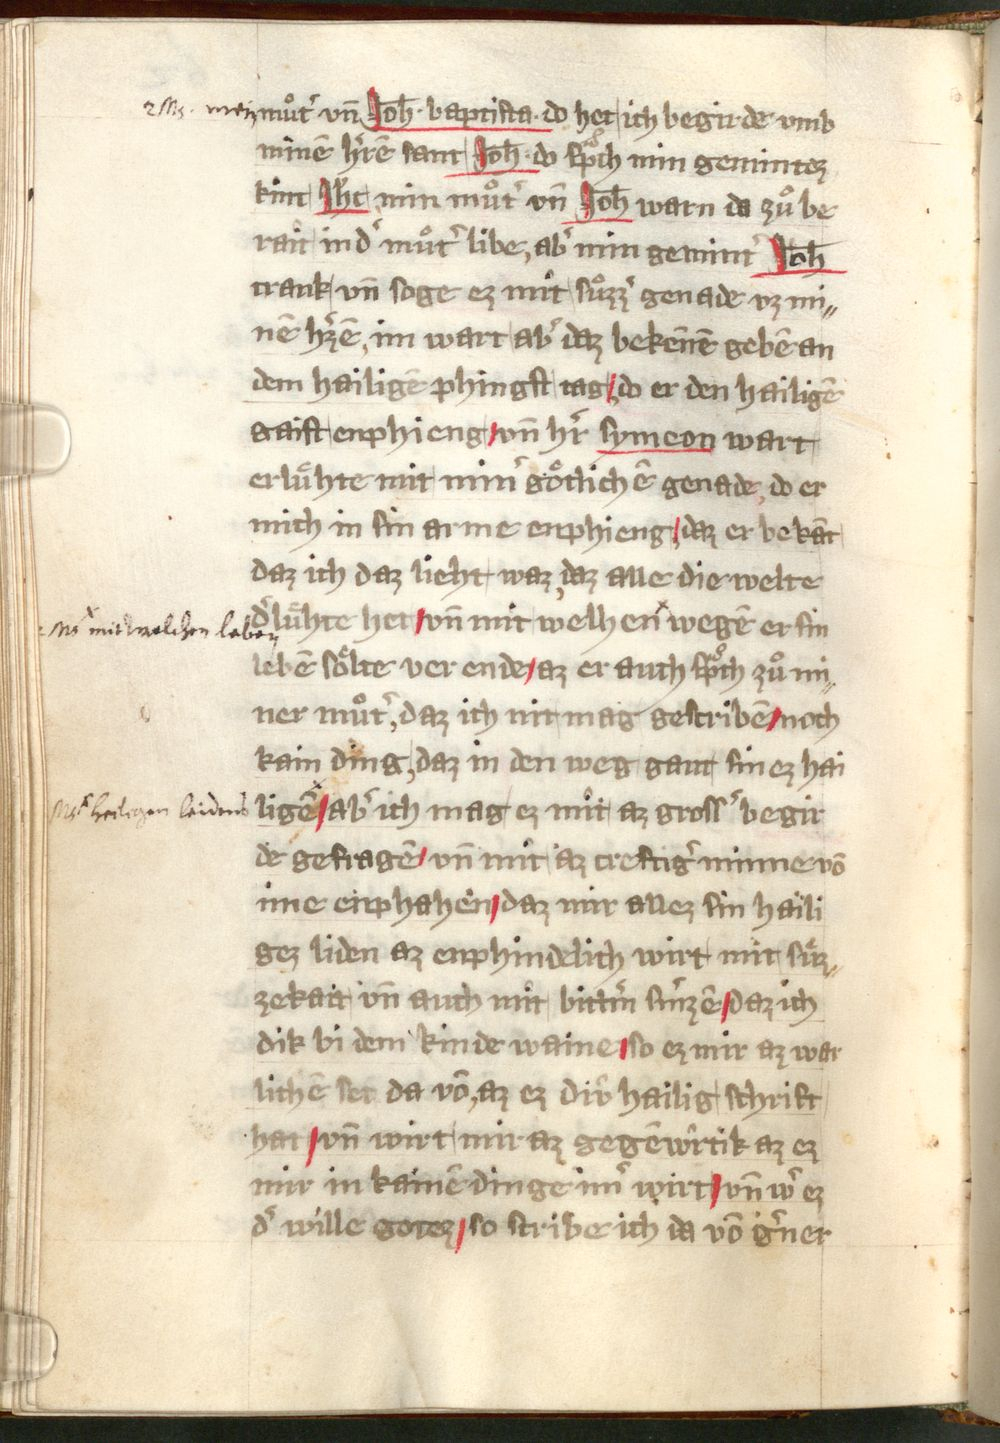 2 Ms. mein
muͦt' vn̄ Joh̄ · baptista · do het ich begirde vmb
minē h'rē sant Joh̄ · do spͦch min gemintez
kint Jh̄c min muͦt' vn̄ Joh̄ warn da zuͦ be
rait in d' muͦt' libe, ab' min gemint' Joh̄
trank vn̄ soge ez mit suͦzz' genade vz mi〃
nē h'rē, im wart ab' daz bekēnē gebē an
dem hailigē phingst tag, do er den hailigē
gaist enphieng, vn̄ h'r symeon wart
erluͤhte mit min' goͤtlichē genade, do er
mich in sin arme enphieng, daz er bekāt
daz ich daz lieht waz, daz alle die welte
d'luͤhte het, vn̄ mit welhen wegē er sin
2 Ms mit welchen leben
lebē soͤlte ver ende, az er auch spͦch zuͦ mi〃
ner muͦt', daz ich nit mag gescribē, noch
kain ding, daz in den weg gaut sinez hai
ligē, ab' ich mag ez mit az gross' begir
Ms heiligen leidens
de gefragē, vn̄ mit az creftig' minne vō
ime enphahen, daz mir allez sin haili
gez liden az enphindelich wirt mit suͤz〃
zekait vn̄ auch mit bitt'm sm'zē, daz ich
dik bi dem kinde waine, so ez mir az war
lichē set da vō, az ez dir hailig schrift
hat, vn̄ wirt mir az gegēwirtik az ez
mir in kainē dinge im' wirt, vn̄ w' ez
d' wille gotez, so scriber ich da vō g'ner